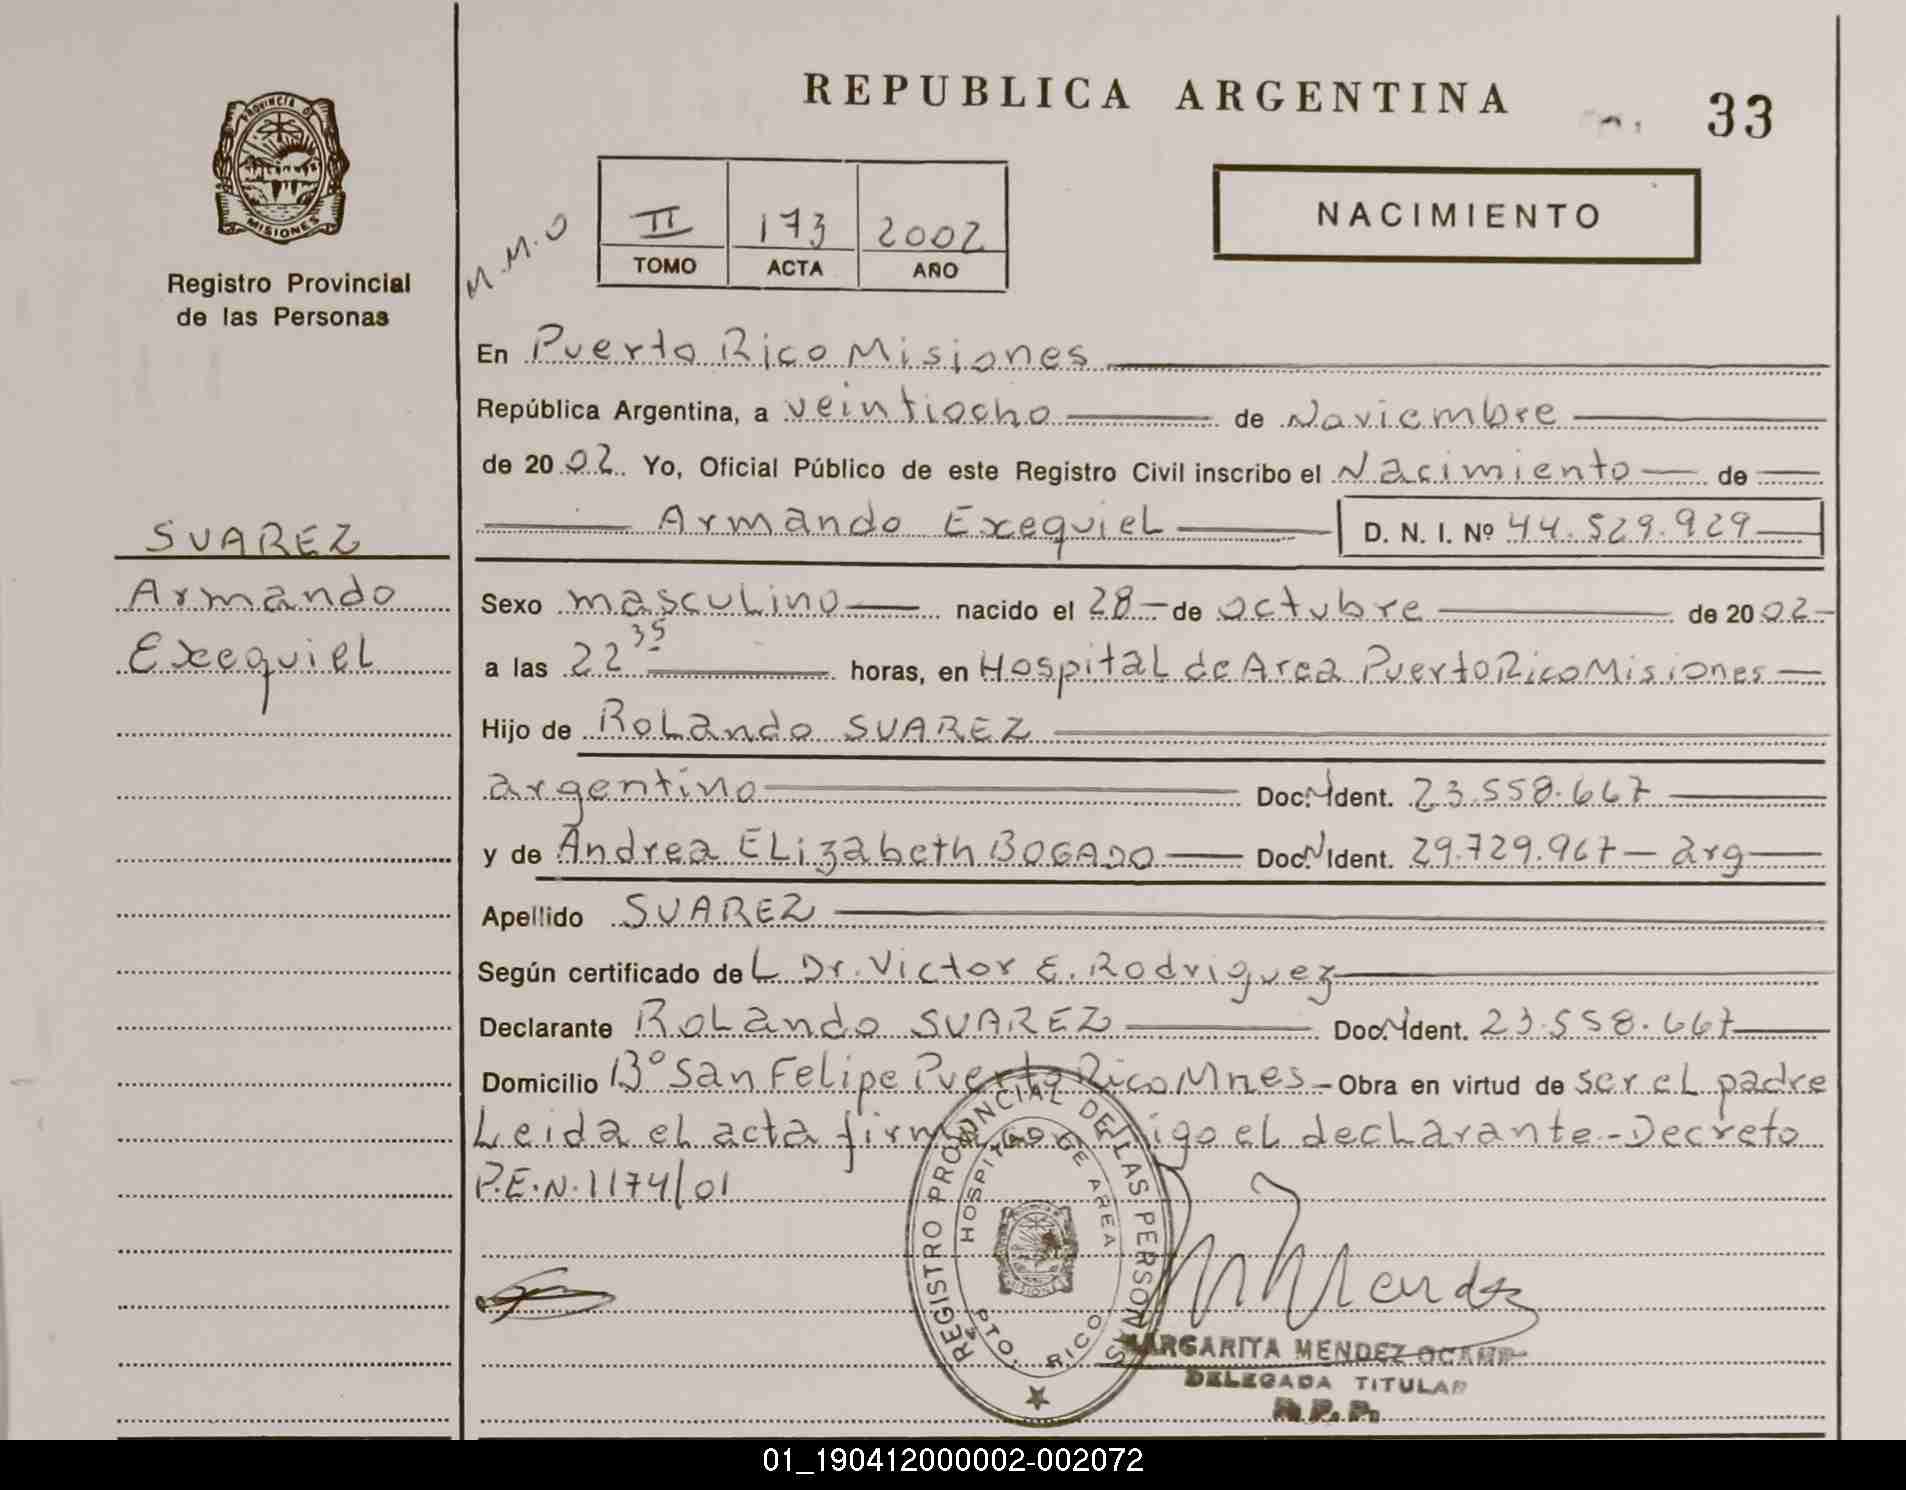 REPUBLICA ARGENTINA
33
PROVINCIA DE
MISIONES
Registro Provincial
de las Personas
M.M.O
II 173 2002
TOMO ACTA AÑO
NACIMIENTO
En Puerto Rico Misiones
República Argentina, a veintiocho de Noviembre
de 2002 Yo, Oficial Público de este Registro Civil inscribo el Nacimiento de
Armando Exequiel D. N. I. Nº 44.529.929
SUAREZ
Armando
Exequiel
Sexo masculino nacido el 28 de octubre de 2002
a las 22 35 horas, en Hospital de Area Puerto Rico Misiones
Hijo de Rolando SUAREZ
argentino Doc. N Ident. 23.558.667
y de Andrea Elizabeth BOGADO Doc. N Ident. 29.729.967 - arg
Apellido SUAREZ
Según certificado del Dr. Victor E. Rodriguez
Declarante Rolando SUAREZ Doc. N Ident. 23.558.667
Domicilio Bº San Felipe Puerto Rico Mnes - Obra en virtud de ser el padre
Leida el acta firma conmigo el declarante - Decreto
P.E.N. 1174/01
REGISTRO PROVINCIAL DE LAS PERSONAS
HOSPITAL DE AREA
PTO. RICO
MISIONES
M Mendez
MARGARITA MENDEZ OCAMP
DELEGADA TITULAR
R.P.P.
01_190412000002-002072